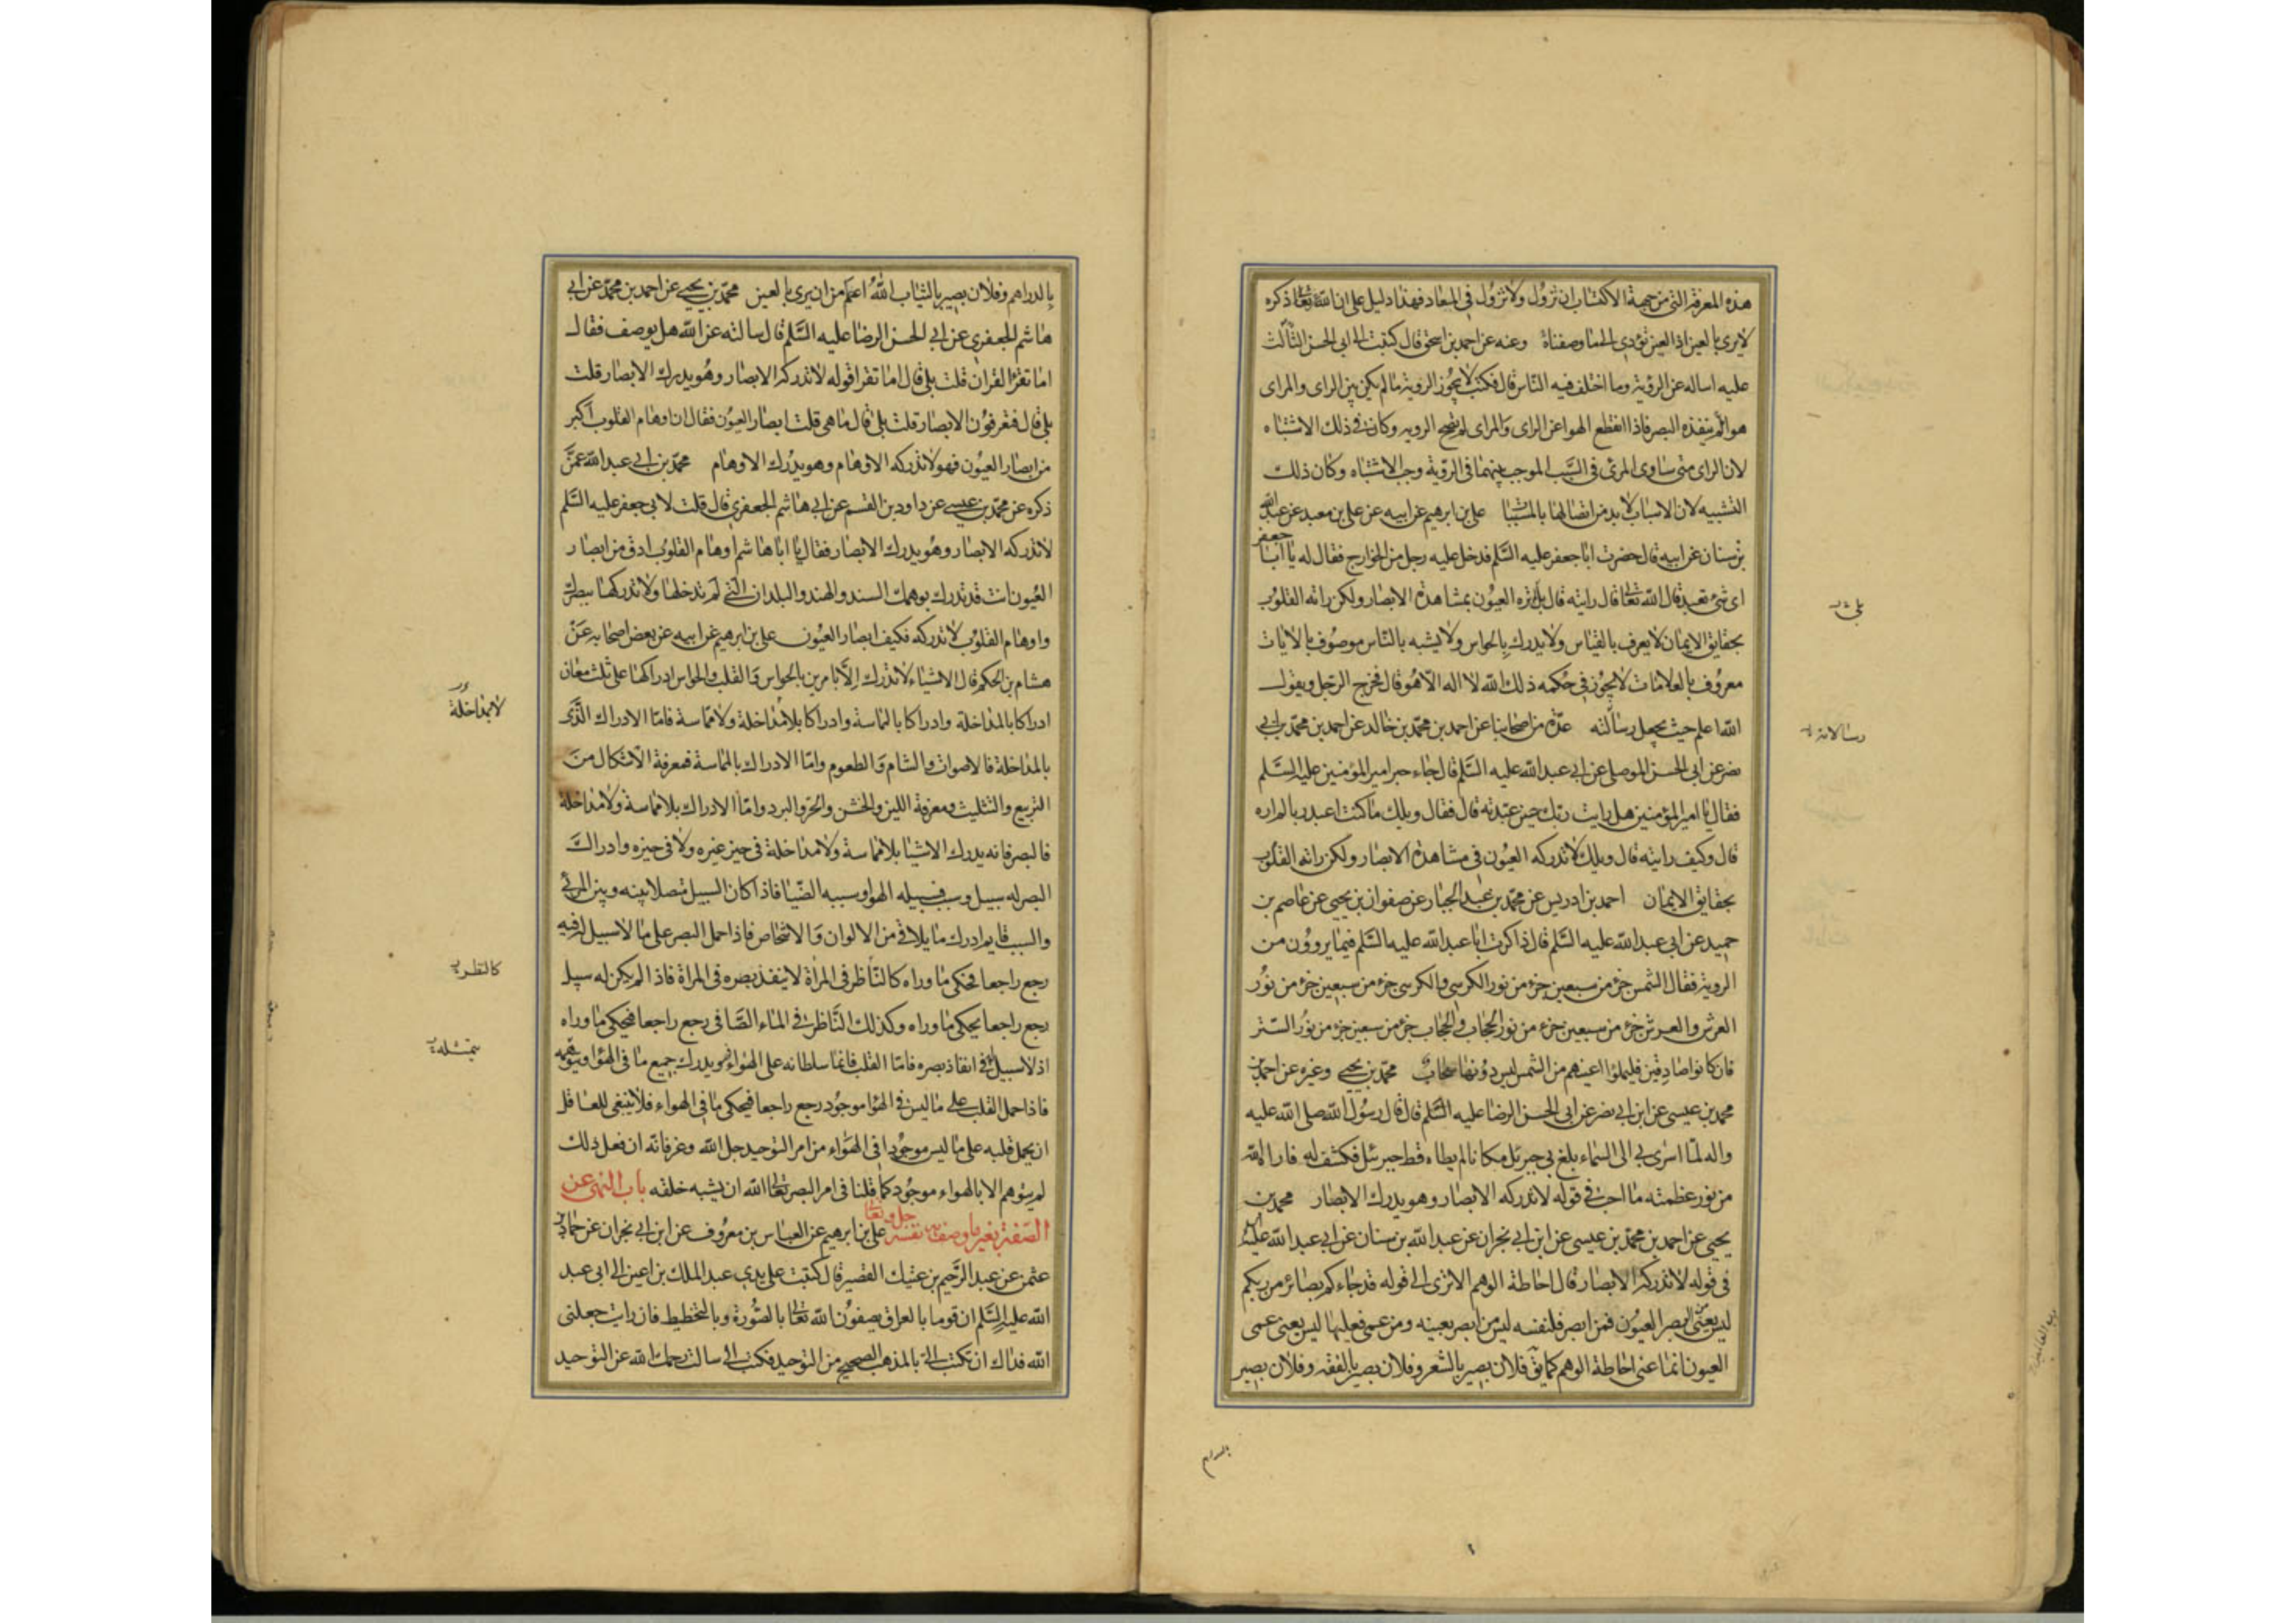 هذه المعرفة التي من جهة الاكتساب ان تزول ولا تزول في المعاد فهذا دليل على ان الله تعالى ذكره
لا يرى بالعين اذ العين تؤدي الى ما وصفناه وعنه عن احمد بن اسحق قال كتبت الى ابي الحسن الثالث
عليه اساله عن الرؤية وما اختلف فيه الناس قال فكتب لا يجوز الروية ما لم يكن بين الراى والمراى
هوا لم ينفذه البصر فاذا انقطع الهوا عن الراى والمراى لم تصح الرويه وكان في ذلك الاشتباه
لان الراى متى ساوى المرئى في السبب الموجب بينهما في الروية وجب الاشتباه وكان ذلك
التشبيه لان الاسباب لا بد من اتصالها بالمسببات على بن ابرهيم عن ابيه عن على بن معبد عن عبد الله
بن سنان عن ابيه قال حضرت ابا جعفر عليه السلم فدخل عليه رجل من الخوارج فقال له يا ابا جعفر
اى شئ تعبد قال الله تعالى قال رايته قال بل لم تره العيون بمشاهدة الابصار ولكن راته القلوب
بحقايق الايمان لا يعرف بالقياس ولا يدرك بالحواس ولا يشبه بالناس موصوف بالايات
معروف بالعلامات لا يجوز في حكمه ذلك الله لا اله الا هو قال فخرج الرجل ويقول
الله اعلم حيث يجعل رسالته عدة من اصحابنا عن احمد بن محمد بن خالد عن احمد بن محمد بن ابى
نصر عن ابى الحسن الموصلى عن ابى عبد الله عليه السلم قال جاء حبر امير المؤمنين عليه السلم
فقال يا امير المؤمنين هل رايت ربك حين عبدته قال فقال ويلك ما كنت اعبد ربا لم اره
قال وكيف رايته قال ويلك لا تدركه العيون في مشاهدة الابصار ولكن راته القلوب
بحقايق الايمان احمد بن ادريس عن محمد بن عبد الجبار عن صفوان بن يحيى عن عاصم بن
حميد عن ابى عبد الله عليه السلم قال ذاكرت ابا عبد الله عليه السلم فيما يروون من
الروية فقال الشمس جزء من سبعين جزء من نور الكرسي والكرسي جزء من سبعين جزء من نور
العرش والعرش جزء من سبعين جزء من نور الحجاب والحجاب جزء من سبعين جزء من نور الستر
فان كانوا صادقين فليملوا اعينهم من الشمس ليس دونها سحاب محمد بن يحيى وغيره عن احمد بن
محمد بن عيسى عن ابن ابى نصر عن ابى الحسن الرضا عليه السلم قال قال رسول الله صلى الله عليه
واله لما اسرى بى الى السماء بلغ بى جبرئل مكانا لم يطاه قط جبرئل فكشف له فاراه الله
من نور عظمته ما احب في قوله لا تدركه الابصار وهو يدرك الابصار محمد بن
يحيى عن احمد بن محمد بن عيسى عن ابن ابى نجران عن عبد الله بن سنان عن ابى عبد الله عليه السلم
في قوله لا تدركه الابصار قال احاطة الوهم الا ترى الى قوله قد جاءكم بصائر من ربكم
ليس يعنى بصر العيون فمن ابصر فلنفسه ليس من ابصر بعينه ومن عمى فعليها ليس يعنى عمى
العيون انما عنى احاطة الوهم كما يق فلان بصير بالشعر وفلان بصير بالفقه وفلان بصير
بالدراهم
بالدراهم وفلان بصير بالثياب الله اعظم من ان يرى بالعين محمد بن يحيى عن احمد بن محمد عن ابى
هاشم الجعفرى عن ابى الحسن الرضا عليه السلم قال سالته عن الله هل يوصف فقال
اما تقرا القران قلت بلى قال اما تقرا قوله لا تدركه الابصار وهو يدرك الابصار قلت
بلى قال فتعرفون الابصار قلت بلى قال ما هى قلت ابصار العيون فقال ان اوهام القلوب اكبر
من ابصار العيون فهو لا تدركه الاوهام وهو يدرك الاوهام محمد بن ابى عبد الله عمن
ذكره عن محمد بن عيسى عن داود بن القسم عن ابى هاشم الجعفرى قال قلت لابى جعفر عليه السلم
لا تدركه الابصار وهو يدرك الابصار فقال يا ابا هاشم اوهام القلوب ادق من ابصار
العيون انت قد تدرك بوهمك السند والهند والبلدان التى لم تدخلها ولا تدركها ببصرك
واوهام القلوب لا تدركه فكيف ابصار العيون على بن ابرهيم عن ابيه عن بعض اصحابه عن
هشام بن الحكم قال الاشياء لا تدرك الا بامرين بالحواس والقلب والحواس ادراكها على ثلث معان
ادراكا بالمداخلة وادراكا بالمماسة وادراكا بلا مداخلة ولا مماسة فاما الادراك الذى
بالمداخلة فالاصوات والمشام والطعوم واما الادراك بالمماسة فمعرفة الاشكال من
التربيع والتثليث ومعرفة اللين والخشن والحر والبرد واما الادراك بلا مماسة ولا مداخلة
فالبصر فانه يدرك الاشيا بلا مماسة ولا مداخلة في حيز غيره ولا في حيزه وادراك
البصر له سبيل وسبب فسبيله الهوا وسببه الضيا فاذا كان السبيل متصلا بينه وبين المرئى
والسبب قايم ادرك ما يلاقى من الالوان والاشخاص فاذا حمل البصر على ما لا سبيل له فيه
رجع راجعا فحكى ما وراه كالناظر في المراة لا ينفذ بصره في المراة فاذا لم يكن له سبيل
رجع راجعا يحكى ما وراه وكذلك الناظر في الماء الصافى رجع راجعا فيحكى ما وراه
اذ لا سبيل له في انفاذ بصره فاما القلب فانما سلطانه على الهواء فهو يدرك جميع ما في الهوا ويتوهمه
فاذا حمل القلب على ما ليس في الهوا موجود رجع راجعا فيحكى ما في الهواء فلا ينبغى للعاقل
ان يحمل قلبه على ما ليس موجودا في الهواء من امر التوحيد جل الله وعز فانه ان فعل ذلك
لم يتوهم الا بالهواء موجود كما قلنا في امر البصر تعالى الله ان يشبه خلقه باب النهى عن
الصفة بغير ما وصف به نفسه جل وتعالى على بن ابرهيم عن العباس بن معروف عن ابن ابى نجران عن حماد بن
عثمن عن عبد الرحيم بن عتيك القصير قال كتبت على يدى عبد الملك بن اعين الى ابى عبد
الله عليه السلم ان قوما بالعراق يصفون الله تعالى بالصورة وبالتخطيط فان رايت جعلنى
الله فداك ان تكتب الى بالمذهب الصحيح من التوحيد فكتب الى سالت رحمك الله عن التوحيد
لا بمداخلة
كالنظر